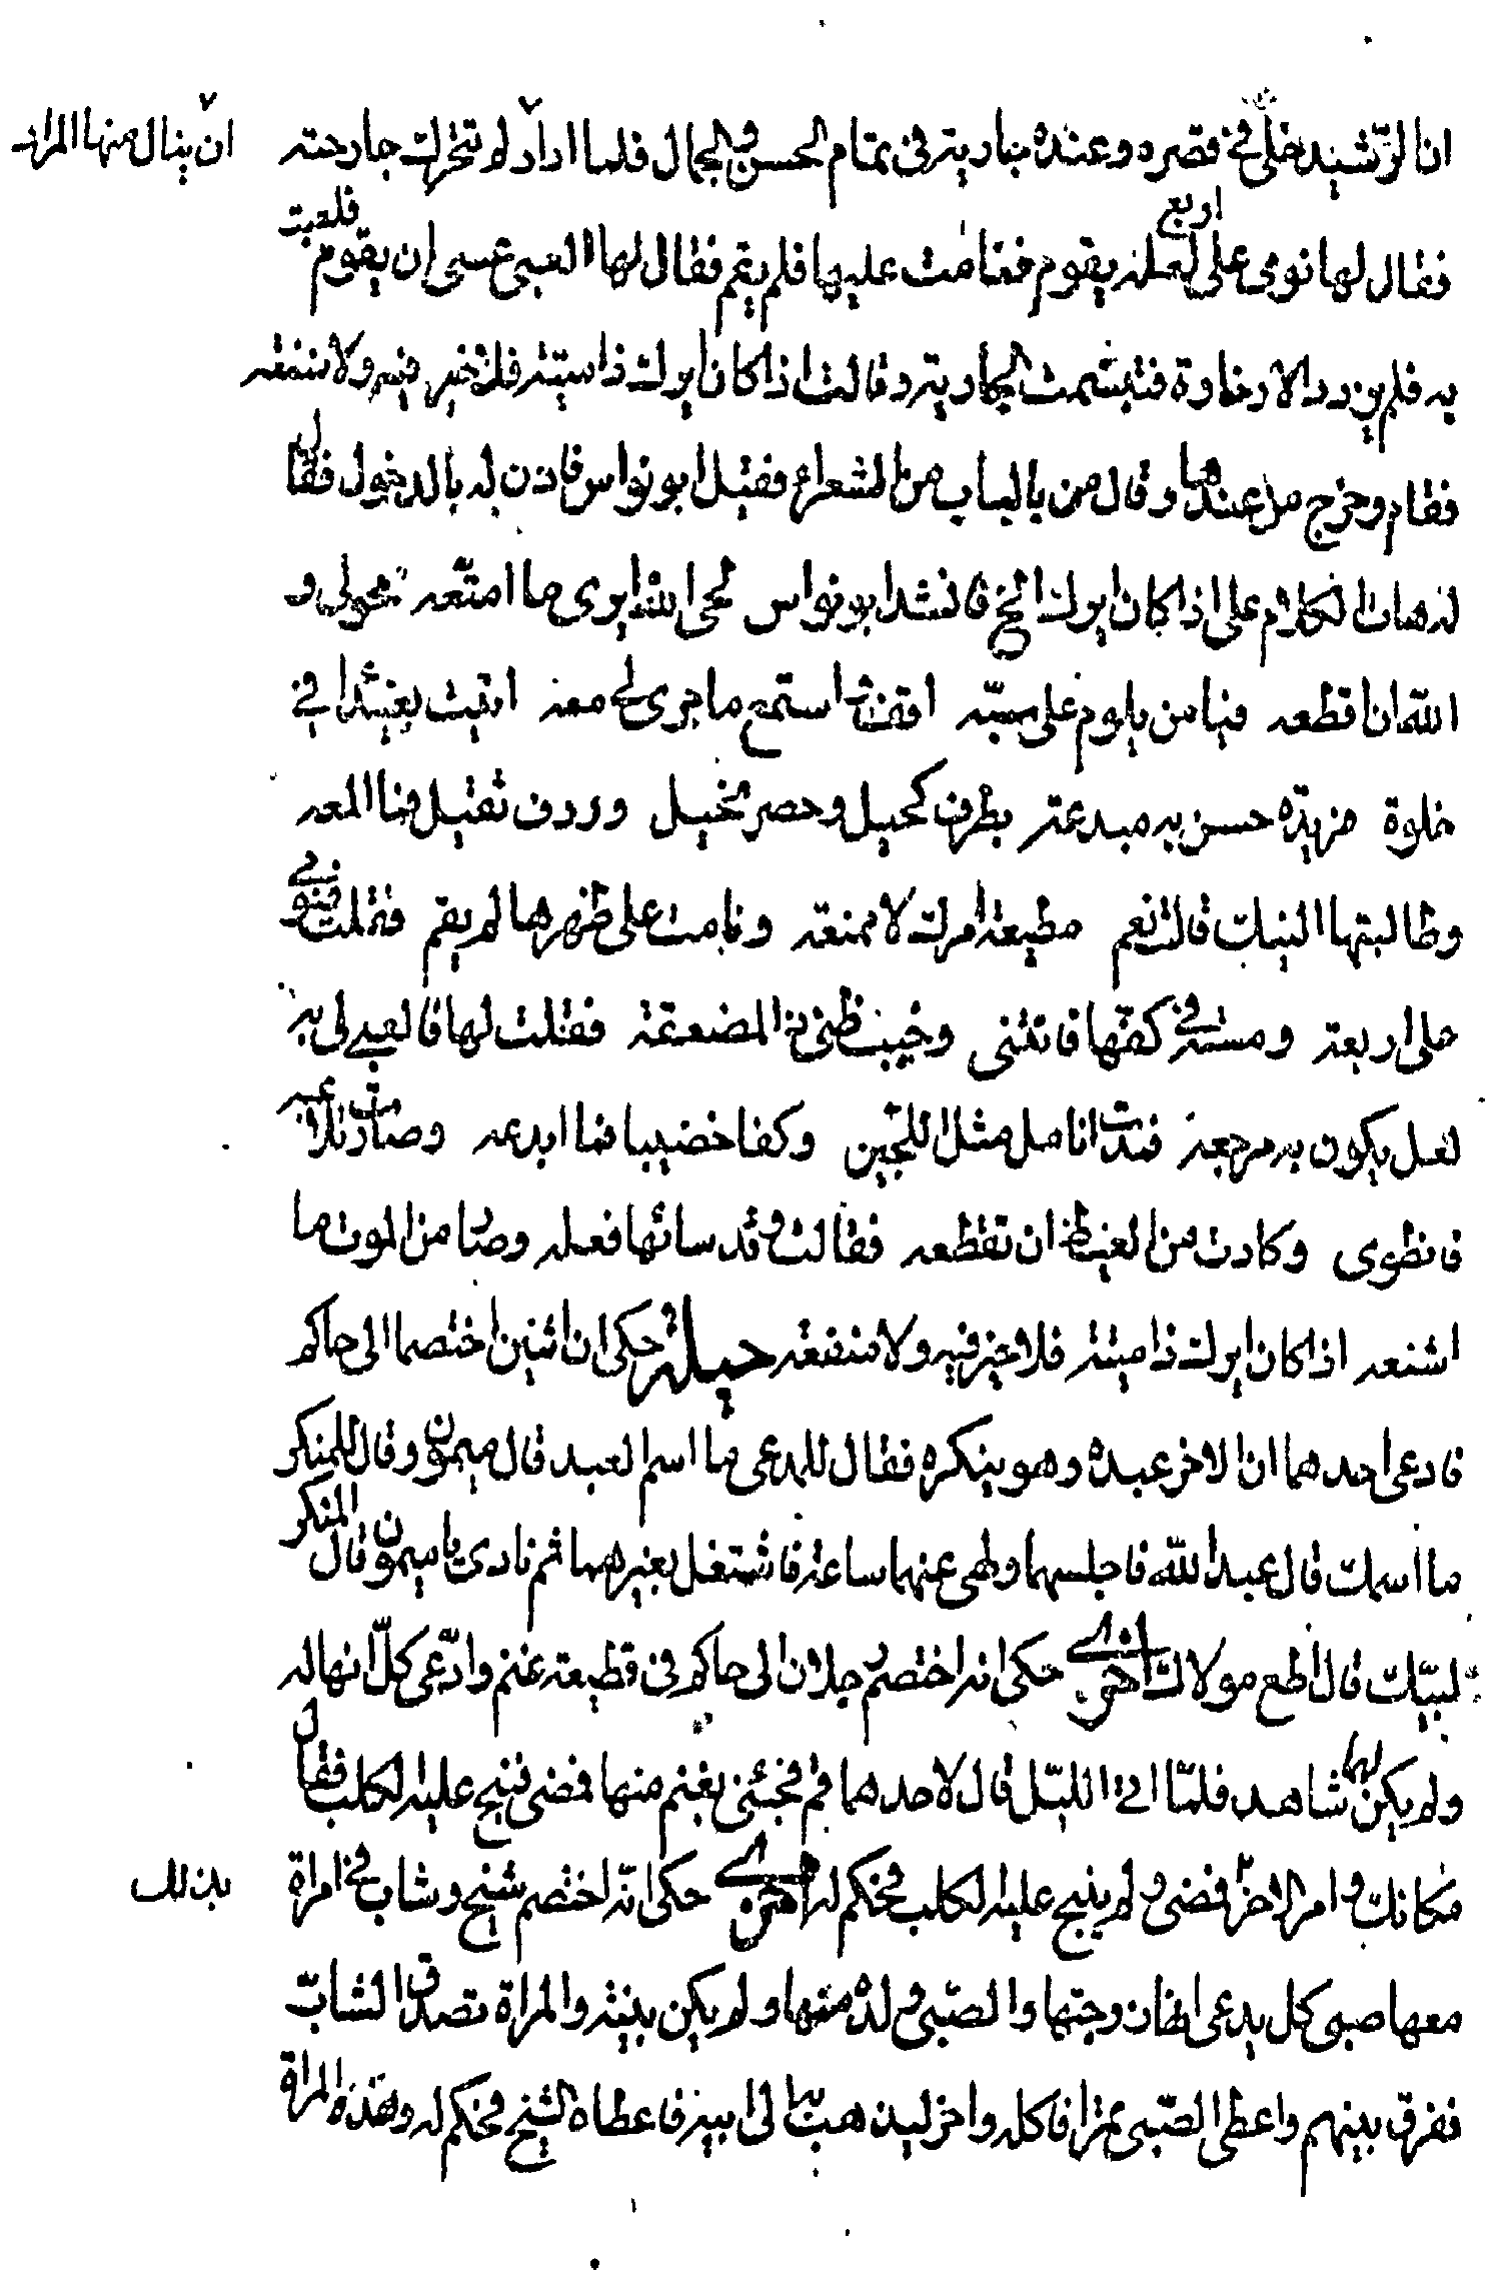 ان الرشيد خلى في قصره وعنده جارية في تمام الحسن والجمال فلما اراد لا تتحرك جارحته ان ينال منها المراد
فقال لها نومي على اربع لعله يقوم فقامت عليها فلم يقم فقال لها العبي عسى ان يقوم فلعبت
به فلم يزدد الا رخاوة فتبسمت الجارية وقالت اذا كان ايرك ذا ميتة فلا خير فيه ولا منفعه
فقام وخرج من عندها وقال من بالباب من الشعراء فقيل ابو نواس فاذن له بالدخول فقال
له هات الكلام على اذا كان ايرك الخ فانشد ابو نواس لحى الله ايري ما امتعه يحق لي و
الله ان اقطعه فيا من يلوم على سبه افق واستمع ما جرى لي معه اتيت بغيداء في
خلوة فريدة حسن به مبدعة بطرف كحيل وخصر نحيل وردف ثقيل فما المعه
وطالبتها النيك قالت نعم مطيعة امرك لا ممنعة ونامت على ظهرها لم يقم فقلت فنومي
على اربعة ومسته في كفها فانثنى وخيب ظني في المضعة فقلت لها فالعبي لي به
لعل يكون به مرجعة فمدت انامل مثل اللجين وكفا خضيبا فما ابدعه وصارت تلاعبه
فانطوى وكادت من الغيظ ان تقطعه فقالت وقد سائها فعله وصار من الموت ما
اشنعه اذا كان ايرك ذا ميتة فلا خير فيه ولا منفعه حيلة حكى ان اثنين اختصما الى حاكم
فادعى احدهما ان الاخر عبده وهو ينكره فقال للمدعى ما اسم العبد قال ميمون وقال للمنكر
ما اسمك قال عبد الله فاجلسهما ولهى عنهما ساعة فاشتغل بغيرهما ثم نادى يا ميمون قال المنكر
لبيك قال اطع مولاك اخرى حكى انه اختصم رجلان الى حاكم في قطيعة غنم وادعى كل انها له
ولم يكن لهما شاهد فلما اتى الليل قال لاحدهما قم فجئني بغنم منها فمضى فنبح عليه الكلب فقال
مكانك وامر الاخر بذلك فمضى ولم ينبح عليه الكلب فحكم له اخرى حكى انه اختصم شيخ وشاب في امراة
معها صبى كل يدعى انها زوجتها والصبى ولده منها ولم يكن بينة والمراة تصدق الشاب
ففرق بينهم واعطى الصبى تمرا فاكله واخر ليذهب بها الى ابيه فاعطاه الشيخ فحكم له وهذه المراة